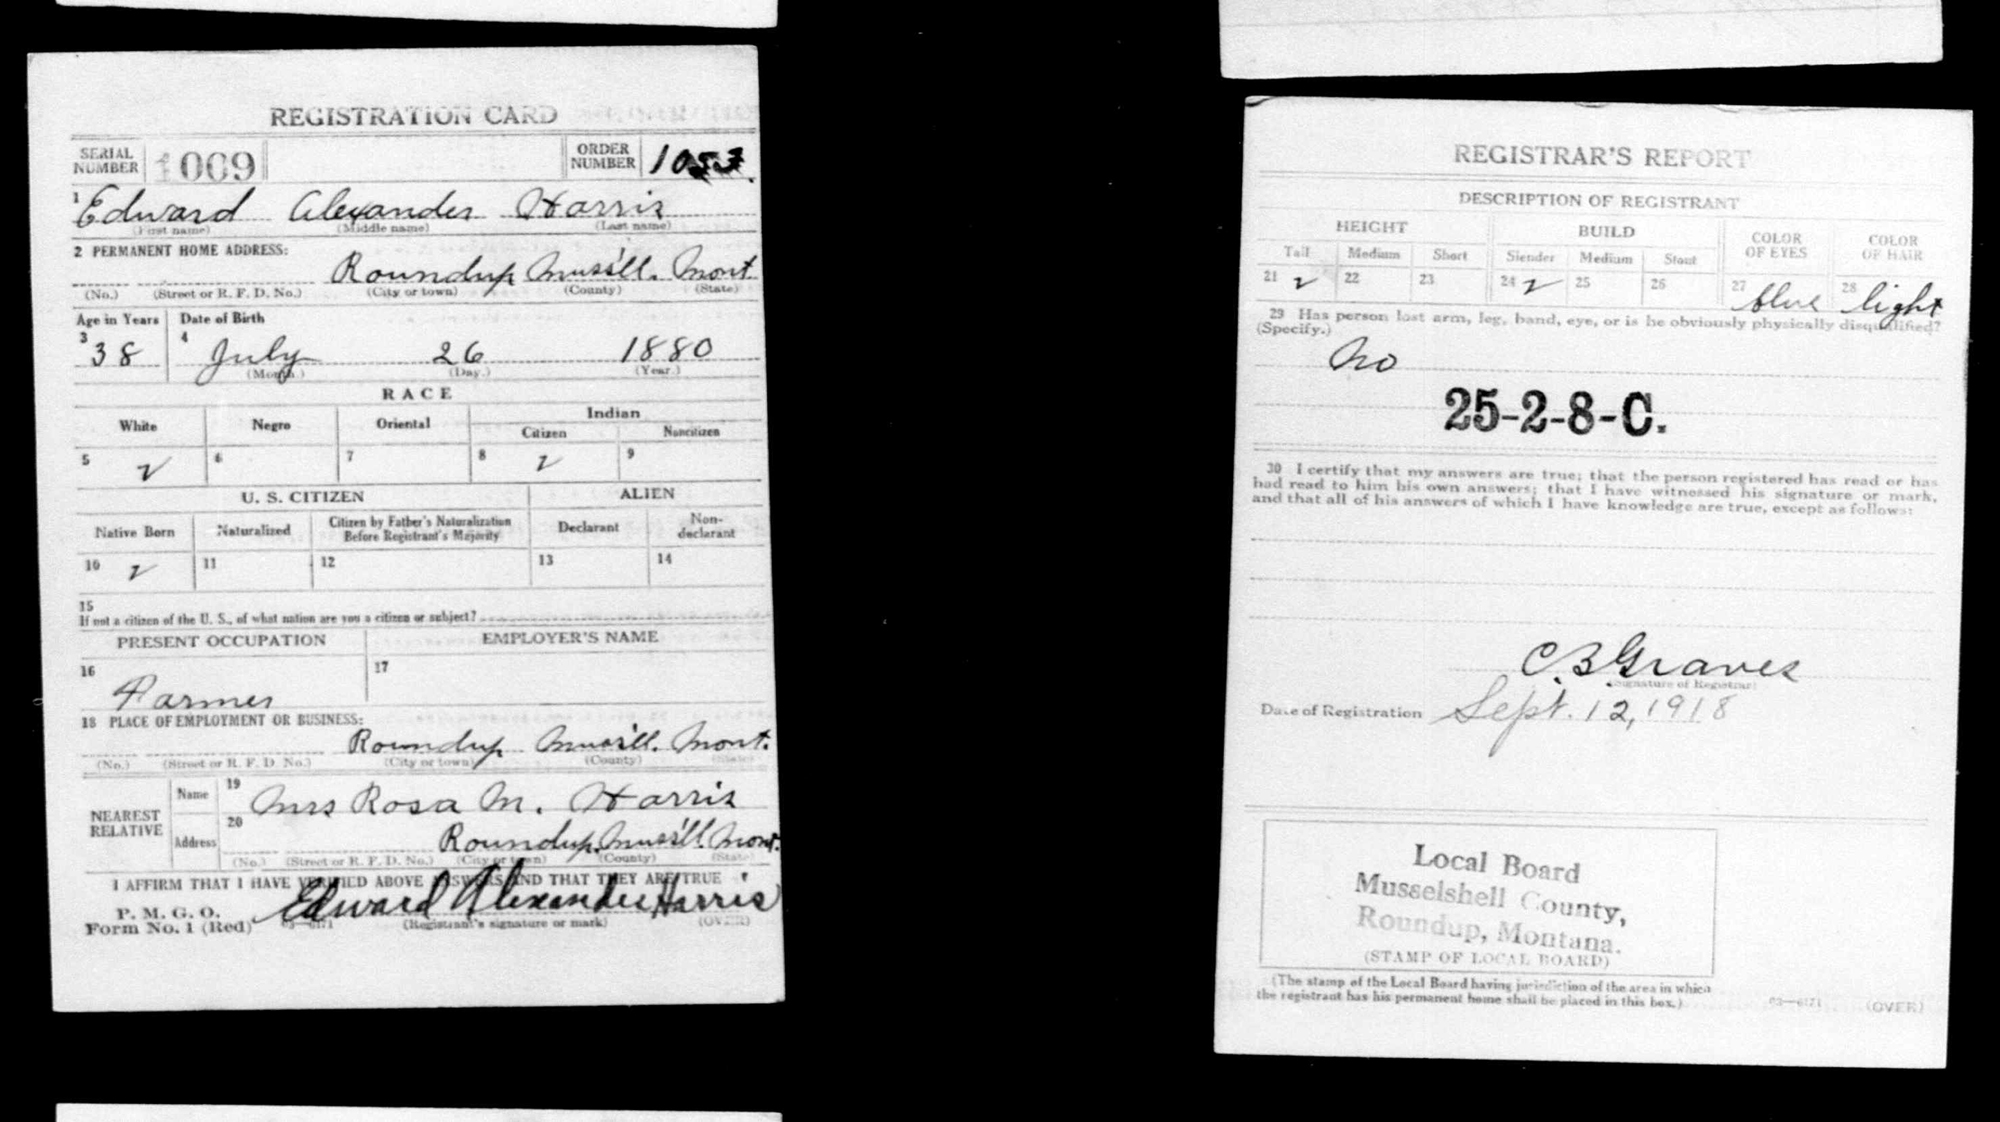 REGISTRATION CARD
SERIAL NUMBER 1069 ORDER NUMBER
1 Edward Alexander Harris
(First name) (Middle name) (Last name)
2 PERMANENT HOME ADDRESS:
Roundup Muss'll. Mont.
(No.) (Street or R. F. D. No.) (City or town) (County) (State)
Age in Years Date of Birth
3 38 4 July 26 1880
(Month.) (Day.) (Year.)
RACE
White Negro Oriental Indian
Citizen Noncitizen
5 ✓ 6 7 8 ✓ 9
U. S. CITIZEN ALIEN
Native Born Naturalized Citizen by Father's Naturalization Before Registrant's Majority Declarant Non-declarant
10 ✓ 11 12 13 14
15
If not a citizen of the U. S., of what nation are you a citizen or subject?
PRESENT OCCUPATION EMPLOYER'S NAME
16 Farmer 17
18 PLACE OF EMPLOYMENT OR BUSINESS:
Roundup Muss'll. Mont.
(No.) (Street or R. F. D. No.) (City or town) (County) (State)
NEAREST RELATIVE Name 19 Mrs Rosa M. Harris
Address 20 Roundup, Muss'll. Mont.
(No.) (Street or R. F. D. No.) (City or town) (County) (State)
I AFFIRM THAT I HAVE VERIFIED ABOVE ANSWERS AND THAT THEY ARE TRUE
P. M. G. O.
Form No. 1 (Red) Edward Alexander Harris
03—6171 (Registrant's signature or mark) (OVER)
REGISTRAR'S REPORT
DESCRIPTION OF REGISTRANT
HEIGHT BUILD COLOR OF EYES COLOR OF HAIR
Tall Medium Short Slender Medium Stout
21 ✓ 22 23 24 ✓ 25 26 27 blue 28 light
29 Has person lost arm, leg, hand, eye, or is he obviously physically disqualified?
(Specify.)
No
25-2-8-C.
30 I certify that my answers are true; that the person registered has read or has
had read to him his own answers; that I have witnessed his signature or mark,
and that all of his answers of which I have knowledge are true, except as follows:
C. B. Graves
(Signature of Registrar)
Date of Registration Sept. 12, 1918
Local Board
Musselshell County,
Roundup, Montana.
(STAMP OF LOCAL BOARD)
(The stamp of the Local Board having jurisdiction of the area in which
the registrant has his permanent home shall be placed in this box.)
03—6171 (OVER)